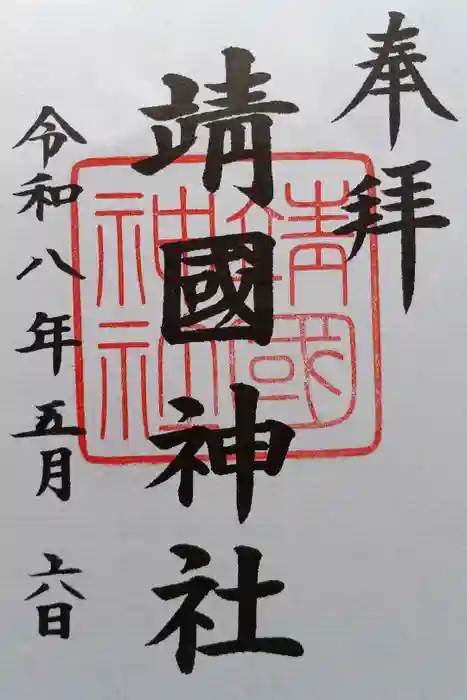 奉拝
靖國神社
令和八年五月六日
靖國
神社